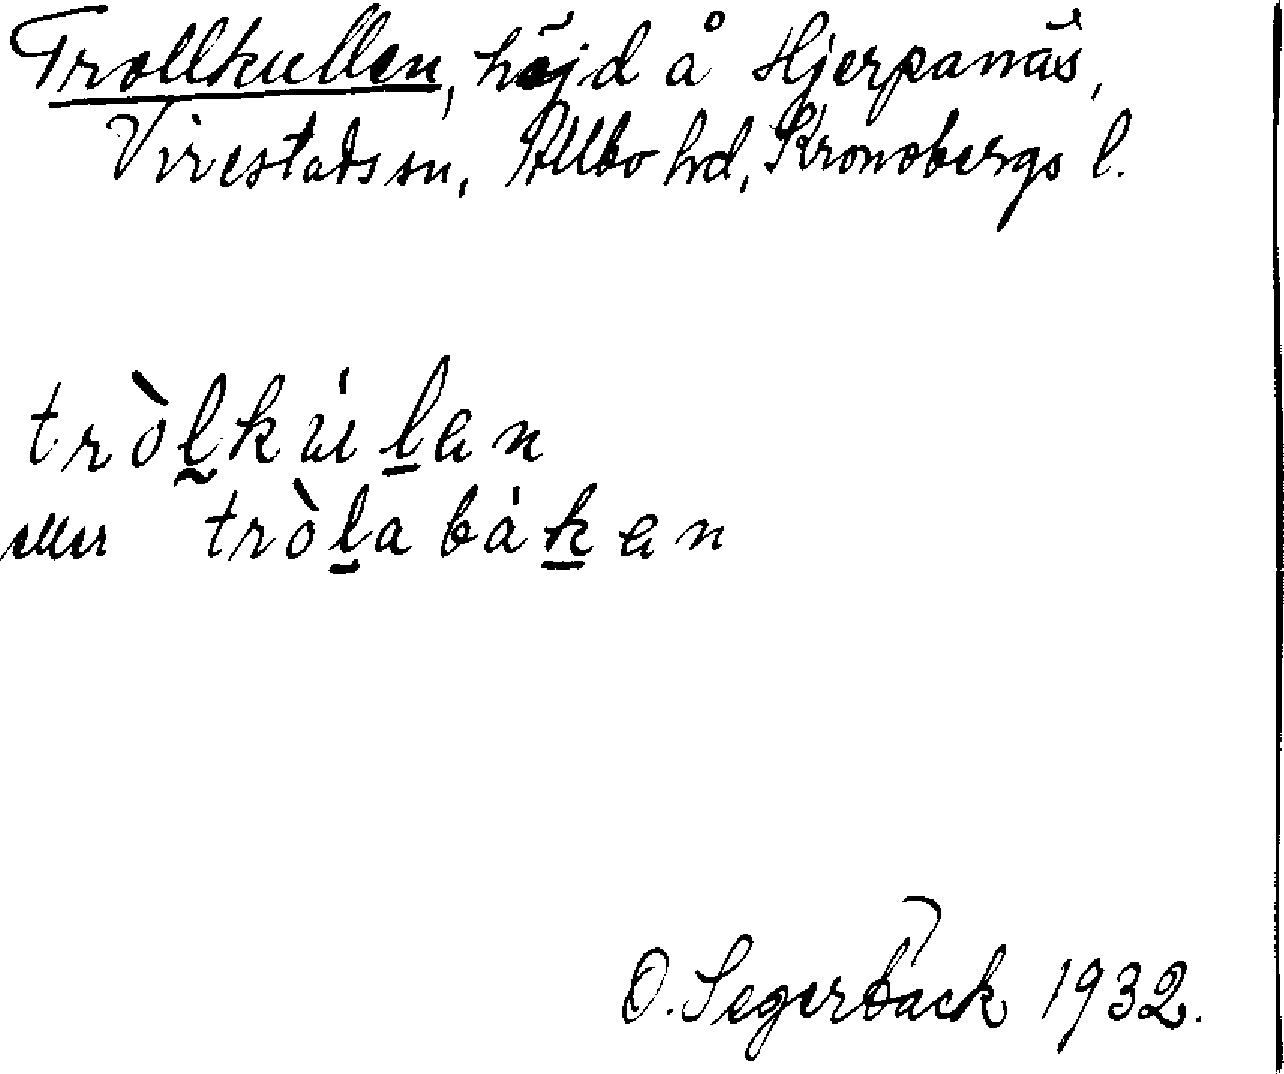 Trollkullen, höjd å Hjerpanäs,
Virestads sn, Allbo hd, Kronobergs l.
tròl̰kùl̠en
eller tròl̠abák̠en
O. Segerbäck 1932.